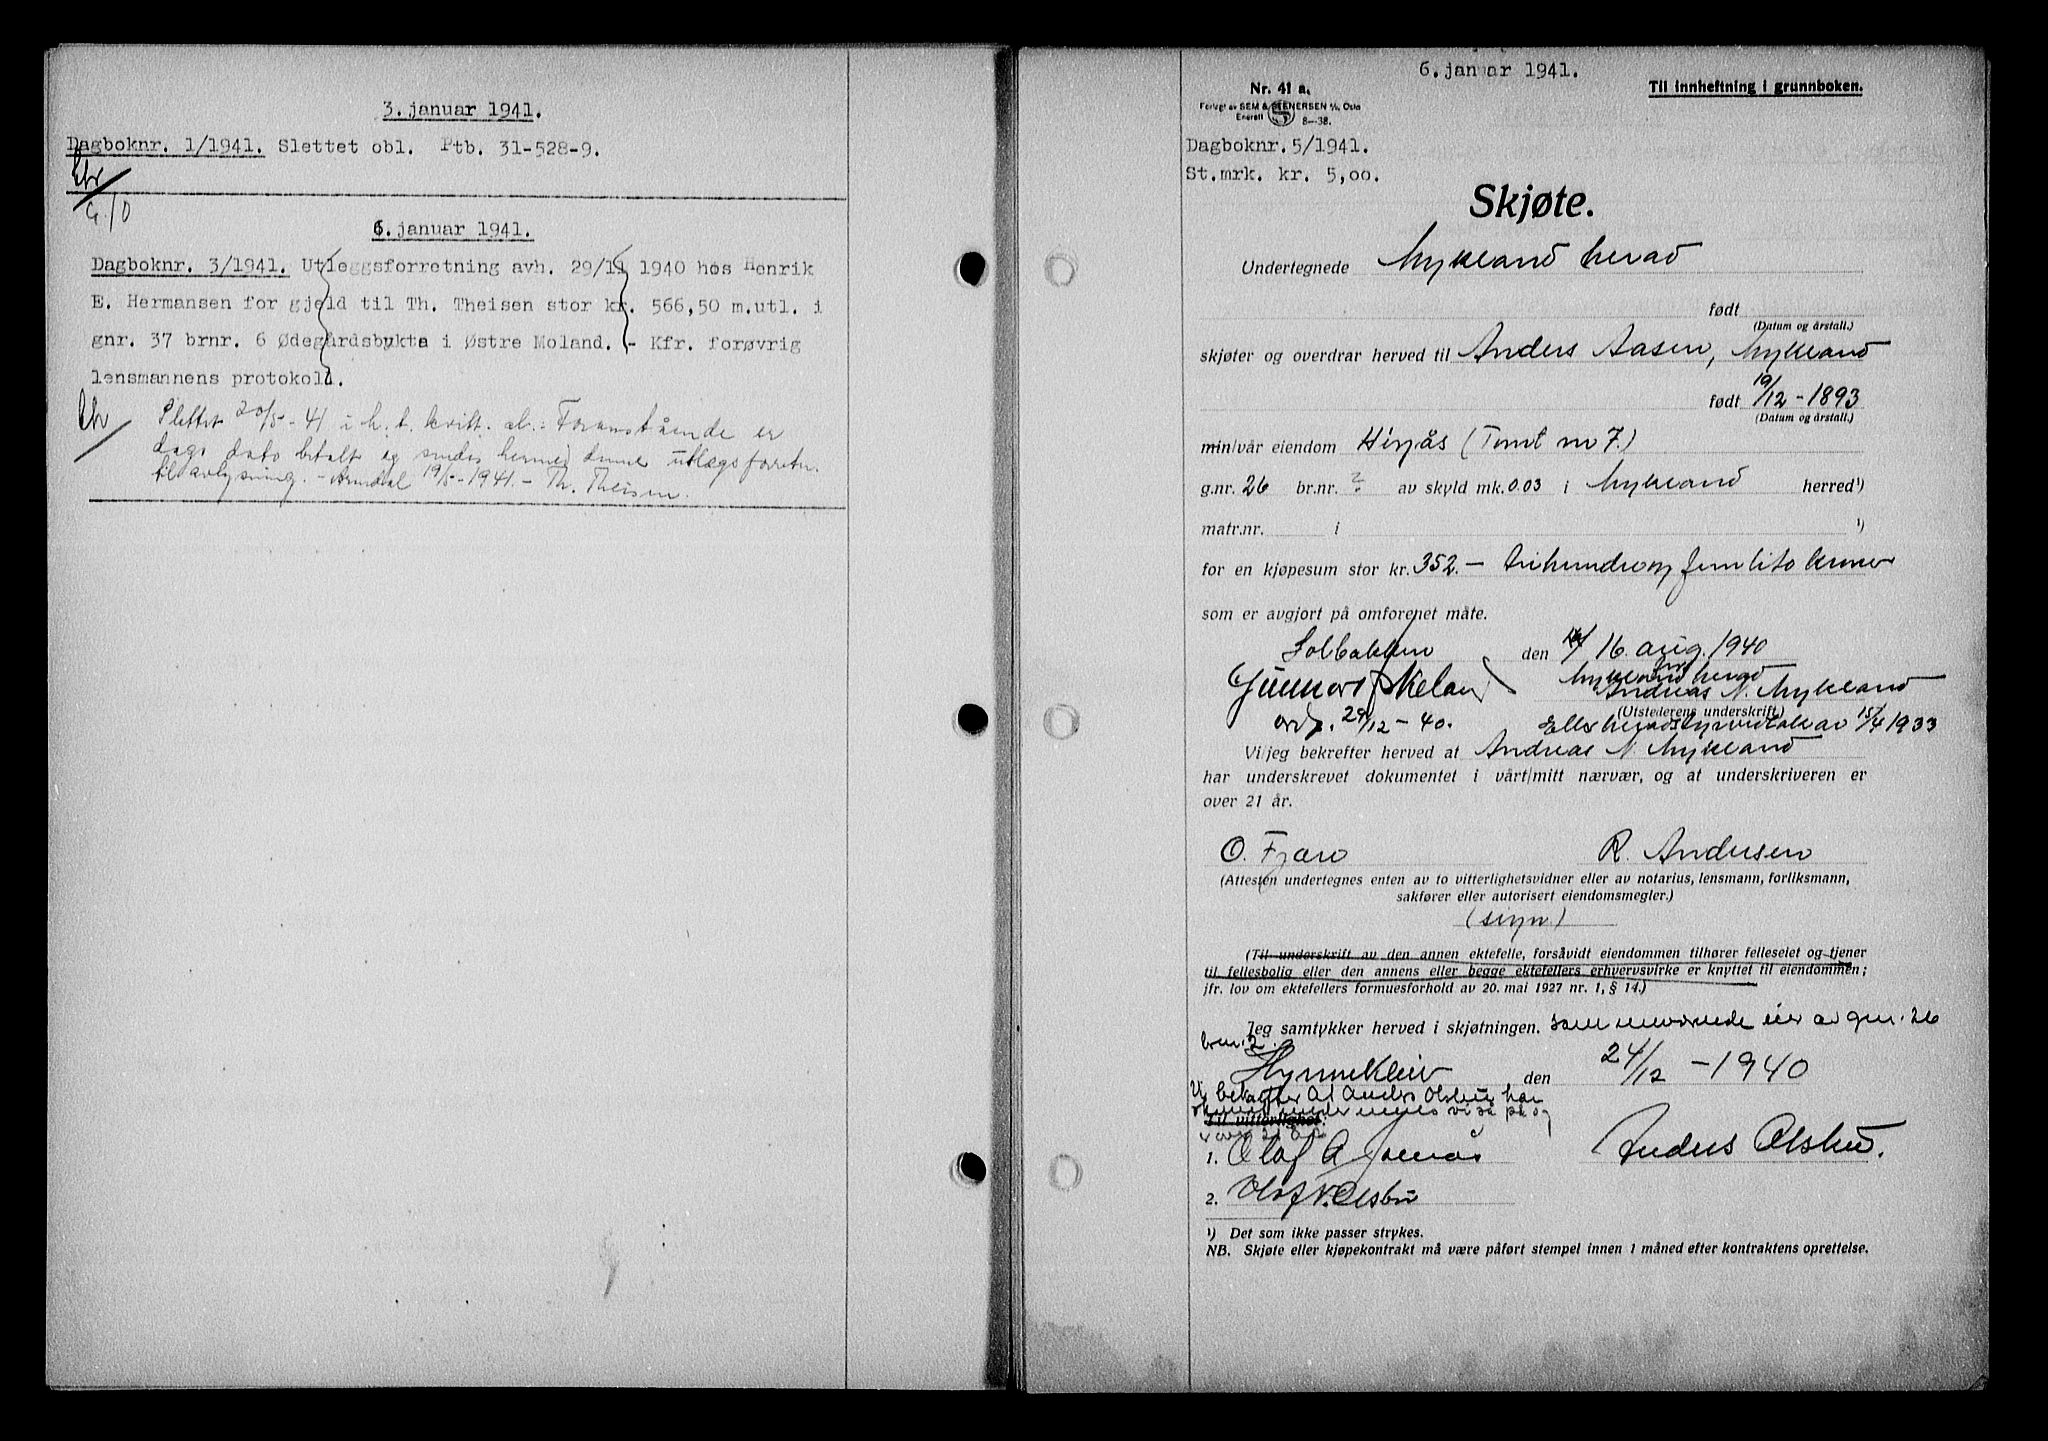 3. januar 1941.
Dagboknr. 1/1941. Slettet obl. Ptb. 31-528-9.
6. januar 1941.
Dagboknr. 3/1941. Utleggsforretning avh. 29/11 1940 hos Henrik
E. Hermansen for gjeld til Th. Theisen stor kr. 566,50 m.utl. i
gnr. 37 brnr. 6 Ødegårdsbykta i Østre Moland. - Kfr. forøvrig
lensmannens protokold.
Slettet 20/5-41 i h. t. kvitt. al.: Foranstående er
dags dato betalt og sendes hermed denne utlægsforretn.
til avlysning. - Arendal 19/5-1941. - Th. Theisen.
6. januar 1941.
Nr. 41 a.
Til innheftning i grunnboken.
Forlagt av SEM & STENERSEN A/S, Oslo
Enerett 8-38.
Dagboknr. 5/1941.
St.mrk. kr. 5,00.
Skjøte.
Undertegnede Mykland herad
født
(Datum og årstall.)
skjøter og overdrar herved til Anders Aasen, Mykland
født 19/12-1893
(Datum og årstall.)
min/vår eiendom Hisås (Tomt nr 7.)
g.nr. 26 br.nr. ? av skyld mk. 0.03 i Mykland herred¹)
matr.nr. i ¹)
for en kjøpesum stor kr. 352.- trihundreog femtito kroner
som er avgjort på omforenet måte.
Solbakken den 16. aug. 1940
for Mykland herad
Gunnar Askeland Andreas N. Mykland
(Utstederens underskrift.)
ordf. 29/12-40. Etter heradstyrevedtak av 15/4 1933
Vi/jeg bekrefter herved at Andreas N. Mykland
har underskrevet dokumentet i vårt/mitt nærvær, og at underskriveren er
over 21 år.
O. Fjære R. Andersen
(Attesten undertegnes enten av to vitterlighetsvidner eller av notarius, lensmann, forliksmann,
sakfører eller autorisert eiendomsmegler.)
(sign.)
(Til underskrift av den annen ektefelle, forsåvidt eiendommen tilhører felleseiet og tjener
til fellesbolig eller den annens eller begge ektefellers erhvervsvirke er knyttet til eiendommen;
jfr. lov om ektefellers formuesforhold av 20. mai 1927 nr. 1, § 14.)
Jeg samtykker herved i skjøtningen. som nuværende eier av gnr. 26
bnr. 2.
Hynnekleiv den 24/12-1940
Vi bekrefter at Anders Olsbu har
vi så på og
Til vitterlighet:
er over 21 år
1. Olaf A. Jomås Anders Olsbu.
2. Olaf N. Olsbu
¹) Det som ikke passer strykes.
NB. Skjøte eller kjøpekontrakt må være påført stempel innen 1 måned efter kontraktens oprettelse.